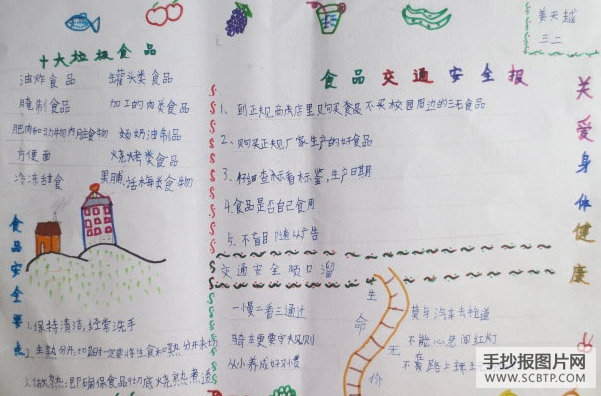 姜天越
三二
十大垃圾食品
油炸食品 罐头类食品
腌制食品 加工的肉类食品
肥肉和动物内脏食物 奶油制品
方便面 烧烤类食品
冷冻甜食 果脯、话梅类食物
食品交通安全报
1、到正规商店里购买食品不买校园周边的三无食品
2、购买正规厂家生产的好食品
3、仔细查看标签,生产日期
4.食品是否自己食用
5、不盲目随从广告
关爱身体健康
交通安全顺口溜
一慢二看三通过
骑车更要守规则
从小养成好习惯
生命无价
莫与汽车去抢道
不能心急闯红灯
食品安全要点
1.保持清洁,经常洗手
3.做熟:即确保食品彻底烧熟煮透
手抄报图片网
WWW.SCBTP.COM